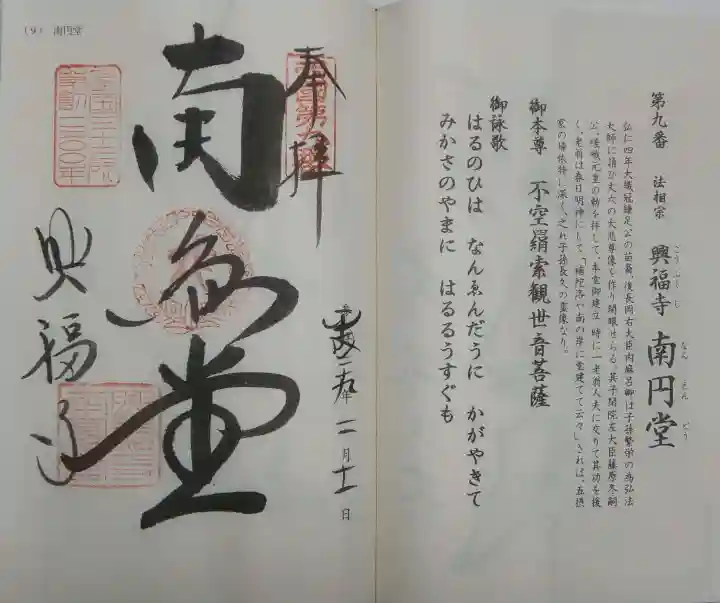 第九番 法相宗 興福寺 南円堂
こうふくじ
なんえんどう
弘仁四年大織冠鎌足公の苗裔、後長岡右大臣内麻呂卿は子孫繁栄の為弘法
大師に請ひ丈六の大悲尊像を作り開眼せらる。其子閑院左大臣藤原冬嗣
公、嵯峨元皇の勅を拝して、本堂御建立、時に一老翁人夫に交りて其功を援
く、老翁は春日明神にして「補陀洛や南の岸に堂建てて云々」されば、五摂
家の帰依特に深く、之れ子孫長久の霊像なり。
御本尊 不空羂索観世音菩薩
御詠歌
はるのひは なんゑんだうに かがやきて
みかさのやまに はるるうすぐも
(9) 南円堂
奉拝
平成二九年 一月十一日
南円堂
興福寺